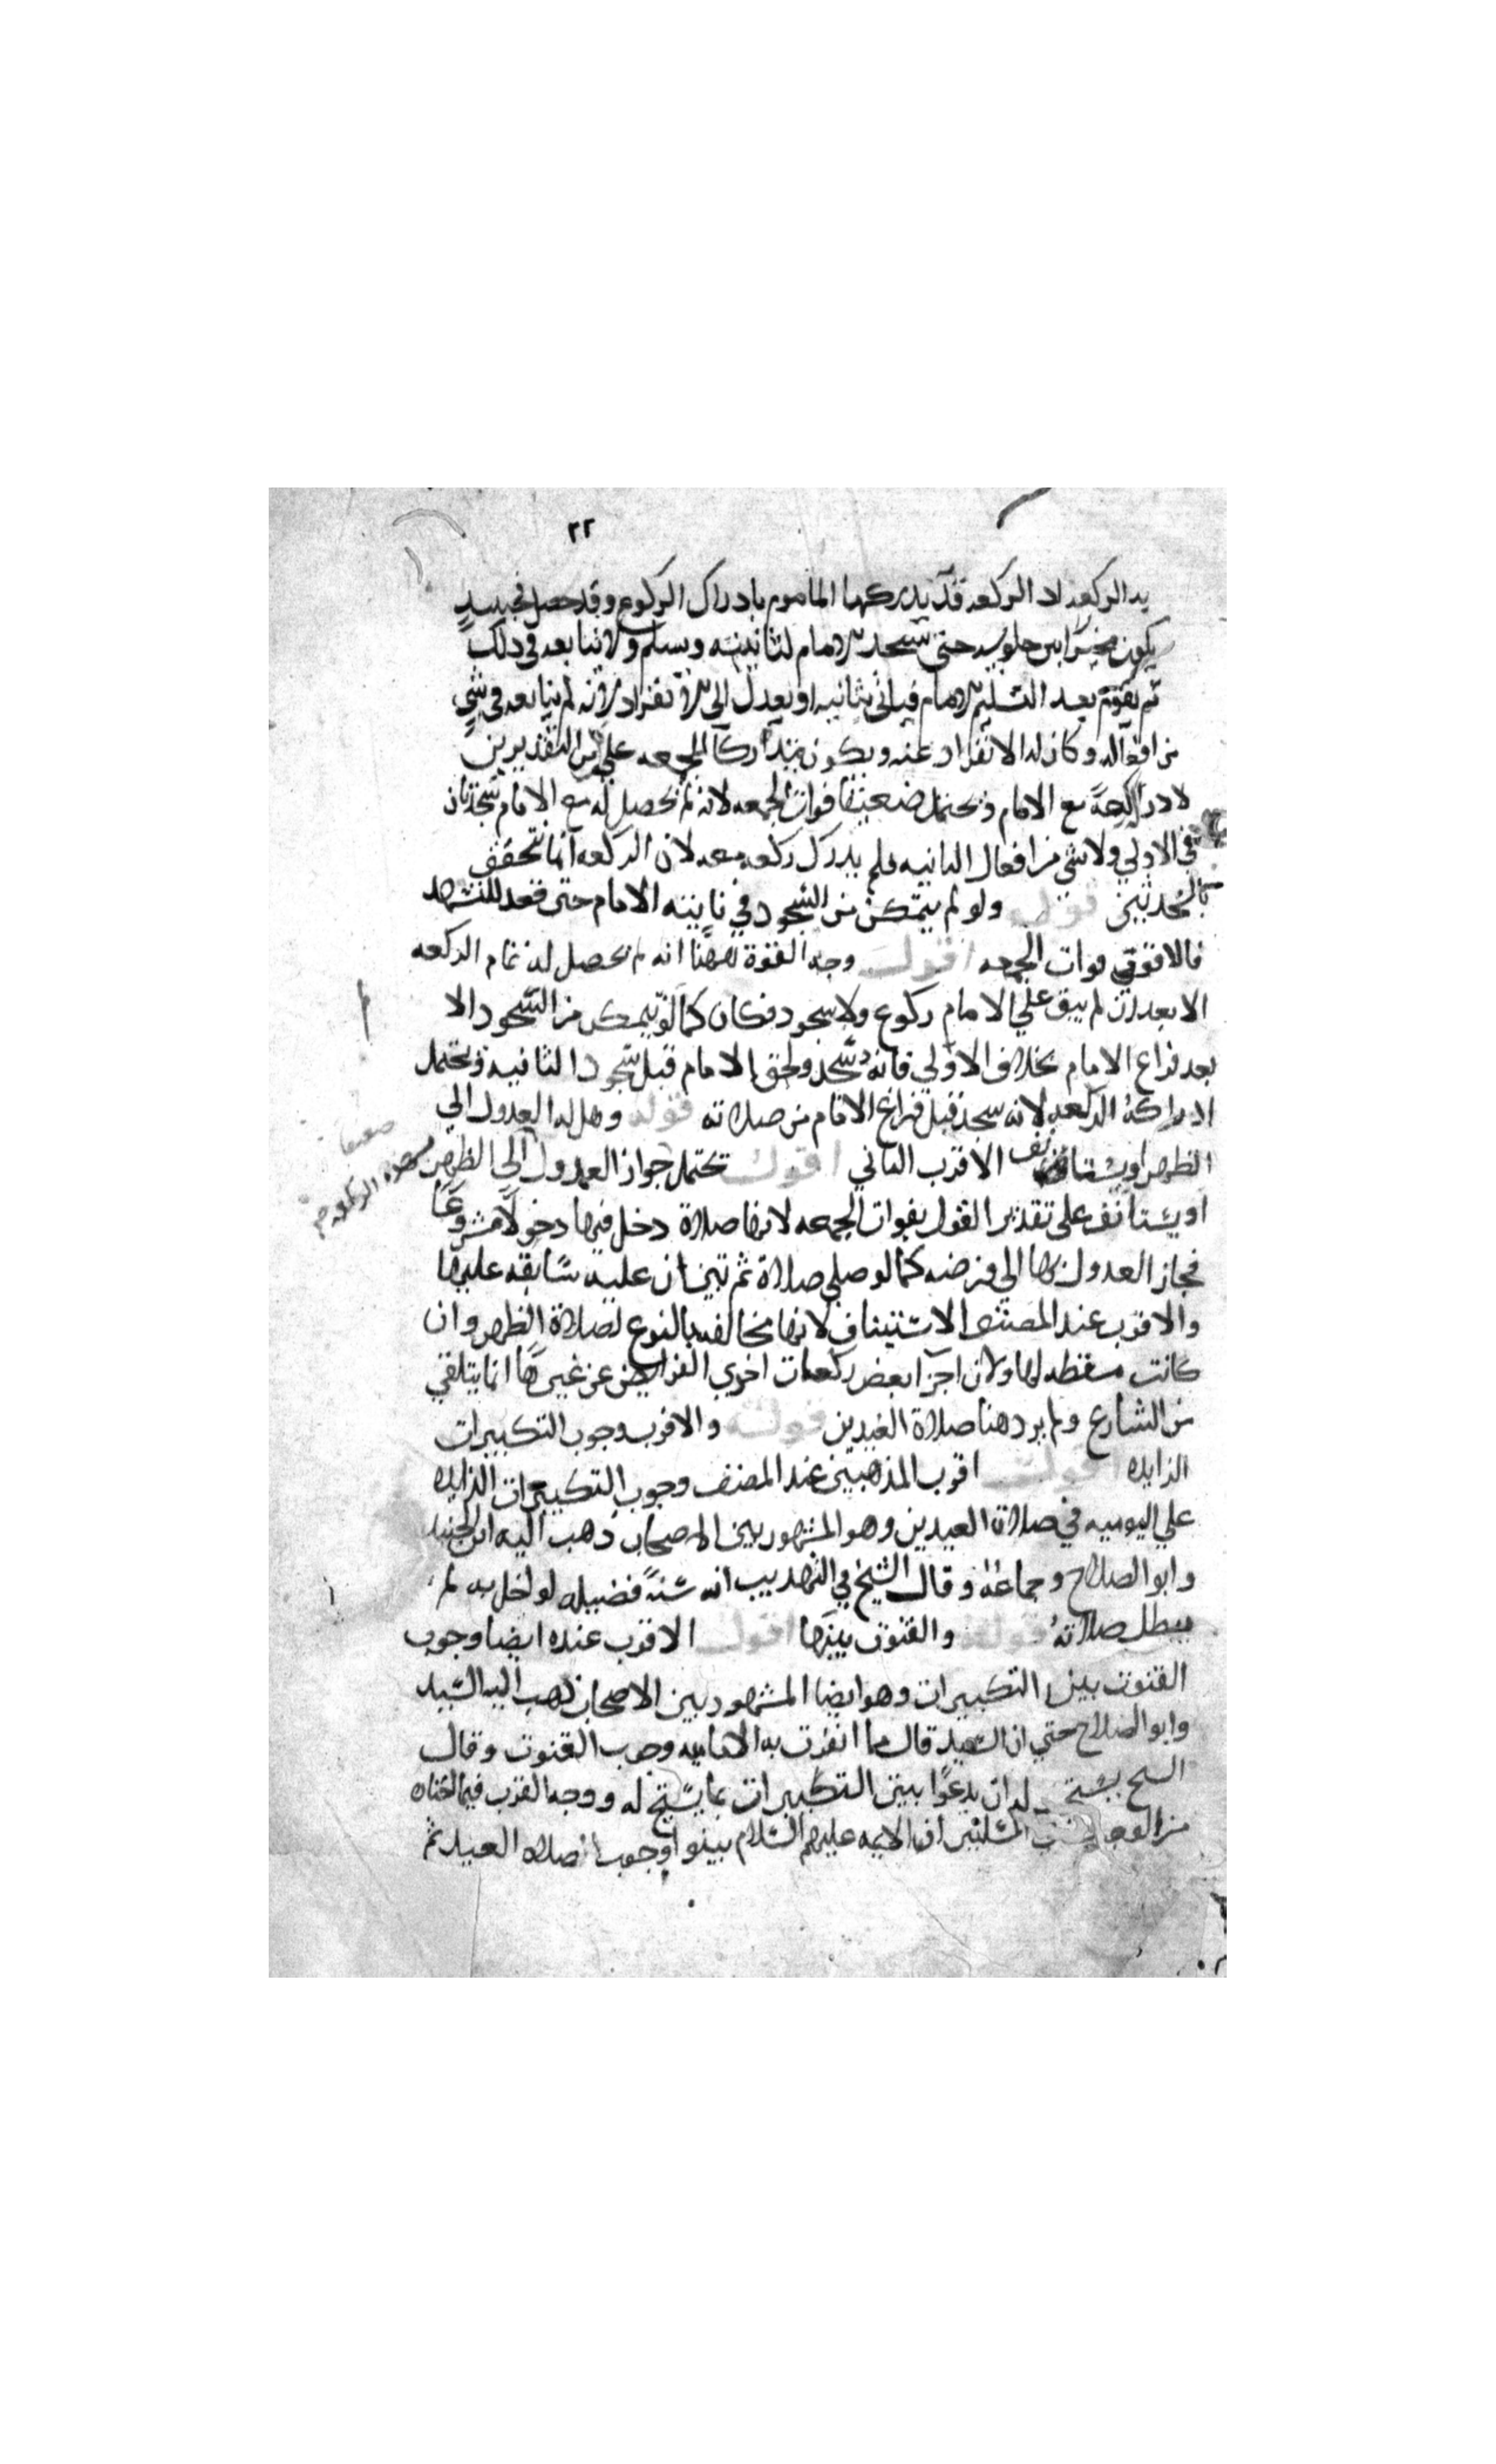 ٢٢
يد الركعه اد الركعه قد يدركها الماموم بادراك الركوع وقد حصل فحينيد
يكون مخيرا بين جلوسه حتى يسجد الامام لثانيته ويسلم ولا يتابعه في دلك
ثم يقوم بعد التسليم الامام فياتي بثانيه او يعدل الى الانفراد لانه لم يتابعه في شي
من افعاله وكان له الانفراد عنه ويكون مدركا للجمعه على التقديرين
لادراكه ركعة مع الامام ويحتمل ضعيفا فوات الجمعه لانه لم يحصل له مع الامام سجدتان
في الاولي ولا شي من افعال الثانيه فلم يدرك ركعه معه لان الركعه انما تتحقق
بالسجدتين قوله ولو لم يتمكن من السجود في ثانيته الامام حتى قعد للتشهد
فالاقوى فوات الجمعه اقول وجه القوة ههنا انه لم يحصل له تمام الركعه
الا بعد ان لم يبق علي الامام ركوع ولا سجود فكان كما لو لم يتمكن من السجود الا
بعد فراغ الامام بخلاف الاولي فانه سجد ولحق الامام قبل سجود الثانيه ويحتمل
ادراكه الركعه لانه سجد قبل فراغ الامام من صلاته قوله وهل له العدول الي
الظهر او يستانف الاقرب الثاني اقول يحتمل جواز العدول الى الظهر
او يستانف على تقدير القول بفوات الجمعه لانها صلاة دخل فيها دخولا مشروعا
فجاز العدول بها الى فرضه كما لو صلي صلاة ثم تبين ان عليه سابقه عليها
والاقرب عند المصنف الاستيناف لانها مخالفه بالنوع لصلاة الظهر وان
كانت مسقطه لها ولان اجزا بعض ركعات اخرى الفرايض عن غيرها انما يتلقي
من الشارع ولم يرد هنا صلاة العيدين قوله والاقرب وجوب التكبيرات
الزايده اقول اقرب المذهبين عند المصنف وجوب التكبيرات الزايده
علي اليوميه في صلاة العيدين وهو المشهور بين الاصحاب ذهب اليه ابن الجنيد
وابو الصلاح وجماعة وقال الشيخ في التهذيب انه سنة فضيله لو اخل به لم
يبطل صلاته قوله والقنوت بينها اقول الاقرب عنده ايضا وجوب
القنوت بين التكبيرات وهو ايضا المشهور بين الاصحاب ذهب اليه السيد
وابو الصلاح حتي ان السيد قال مما انفردت به الاماميه وجوب القنوت وقال
الشيخ يستحب له ان يدعوا بين التكبيرات بما يسنح له ووجه القرب فيما اختاه
من المسلتين ان الايمه عليهم السلام بينوا وجوب صلاه العيد ثم
ضعيفا
الركعه